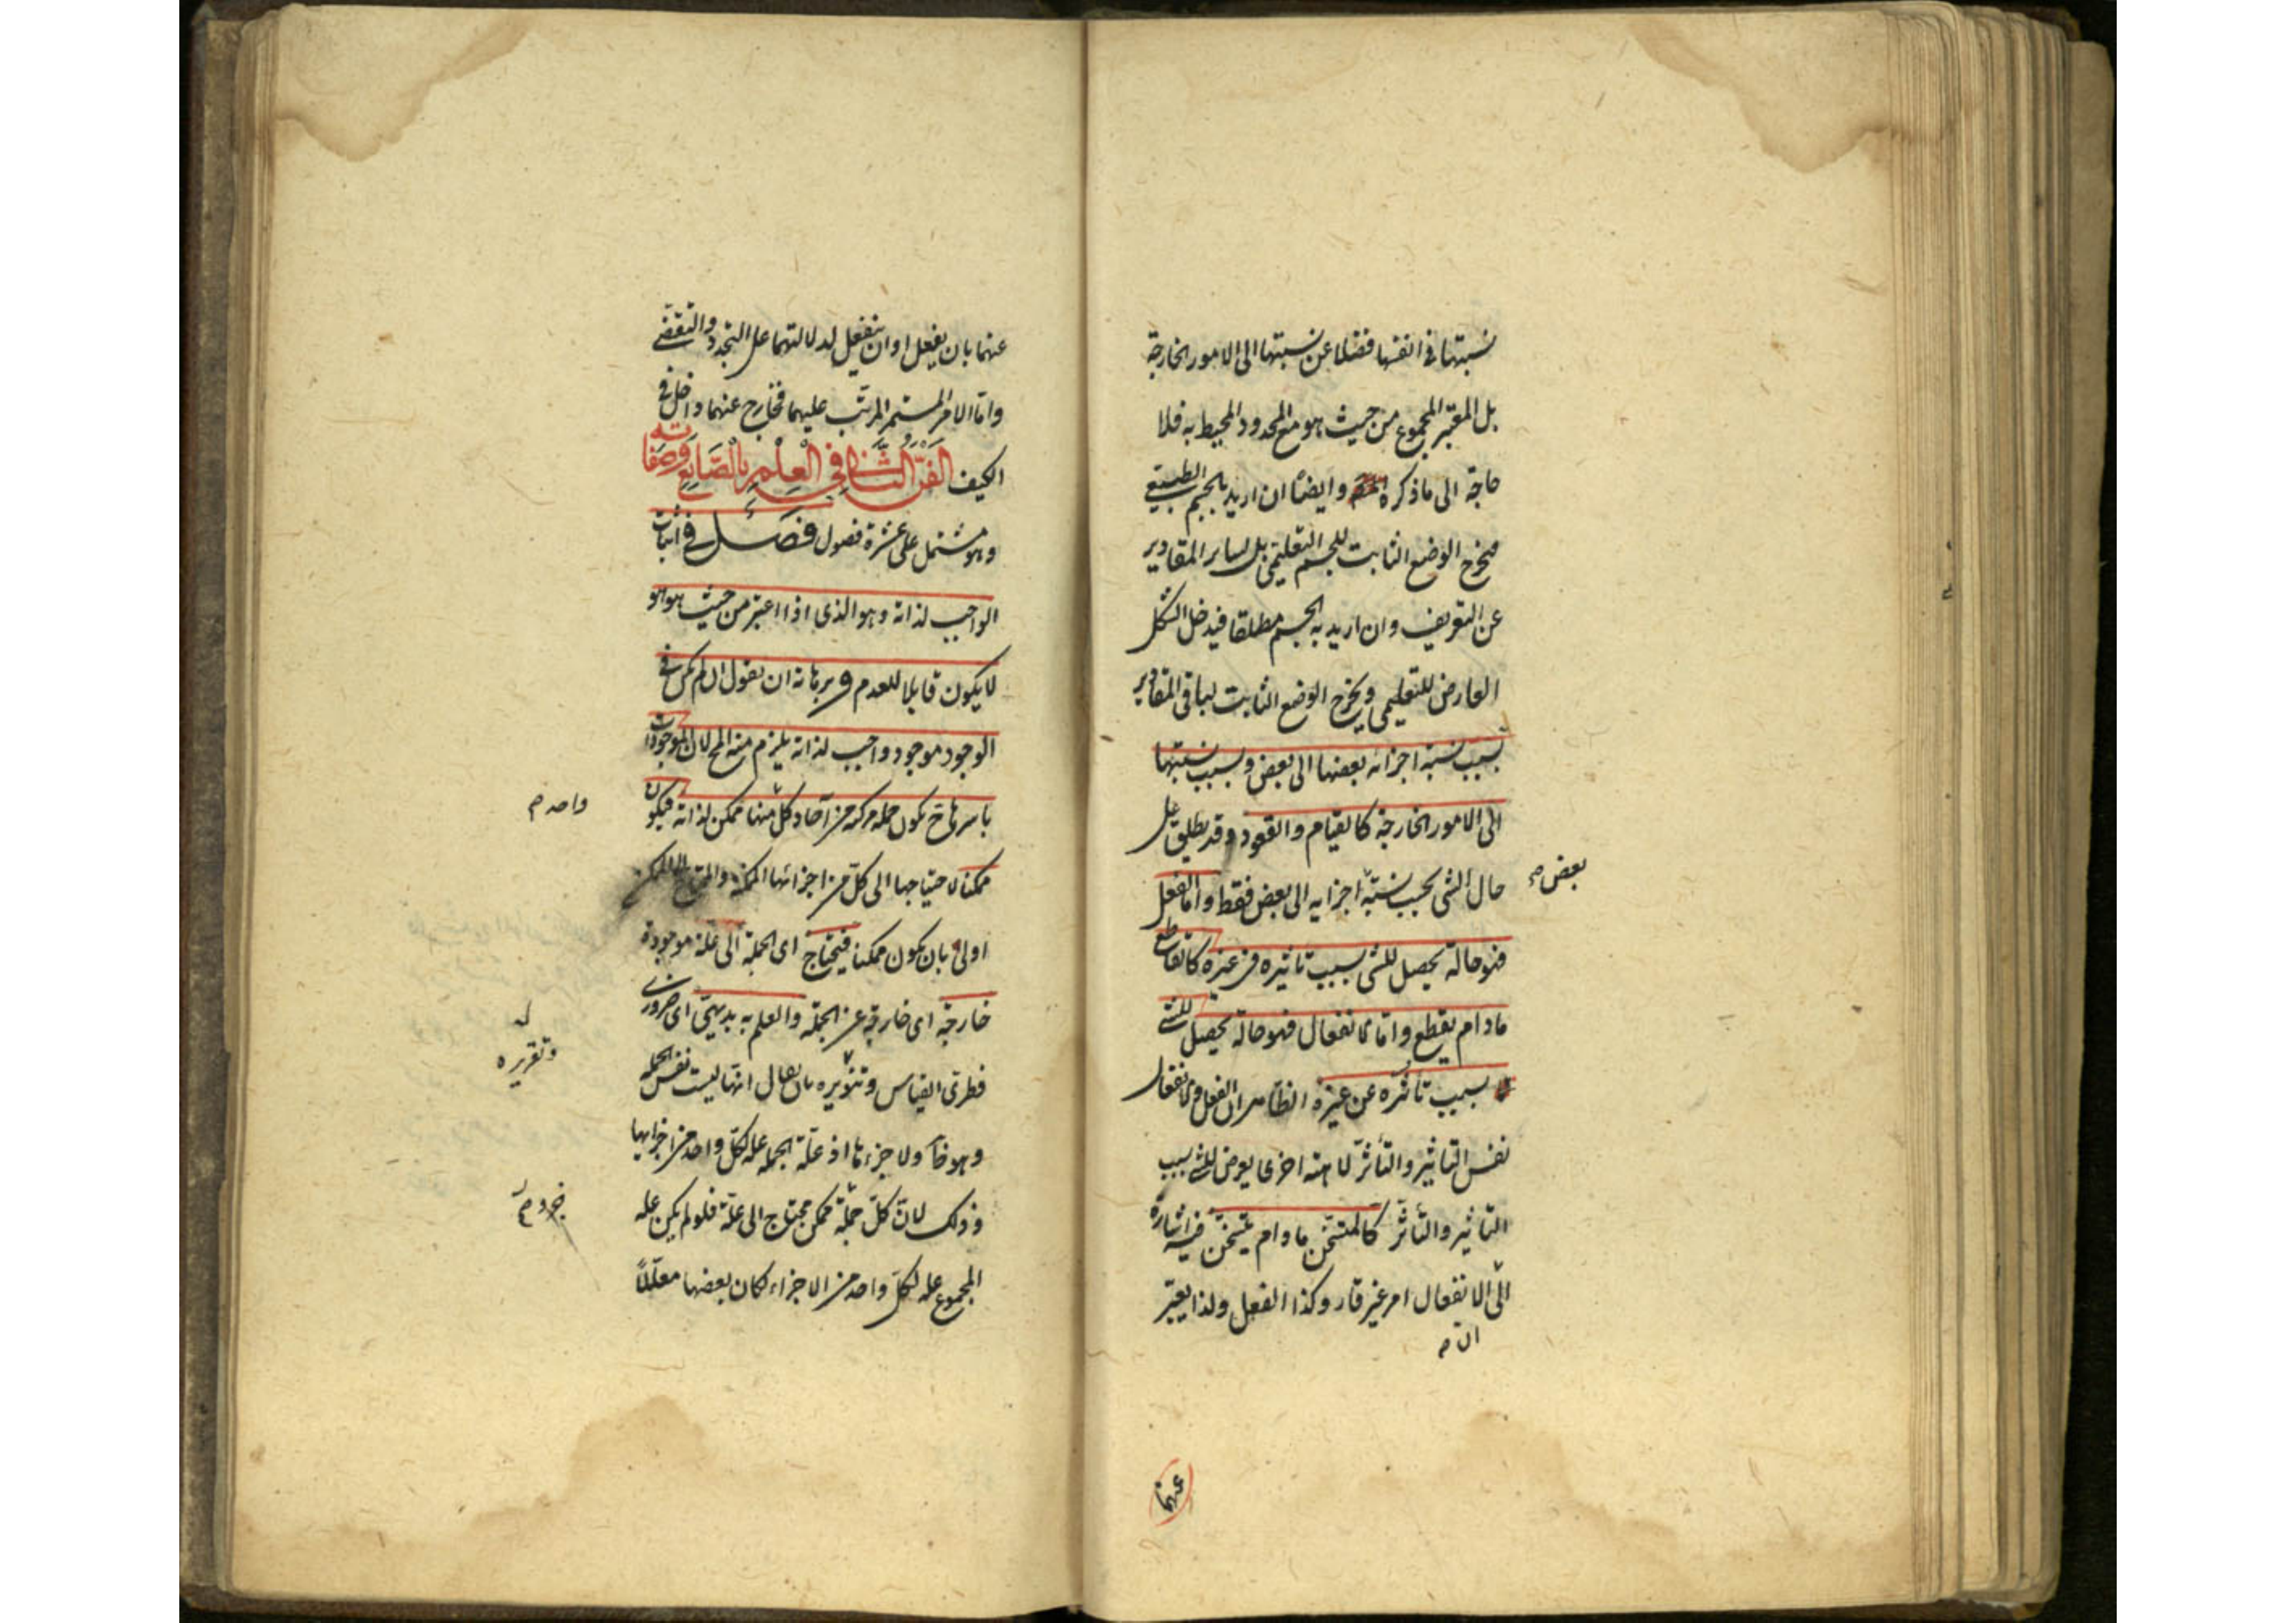 نسبتها فى انفسها فضلا عن نسبتها الى الامور الخارجة
بل المعتبر المجموع من حيث هو مع الحدود المحيط به فلا
حاجة الى ما ذكره وايضا ان اريد بالجسم الطبيعى
فيخرج الوضع الثابت للجسم التعليمى بل لساير المقادير
عن التعريف وان اريد به الجسم مطلقا فيدخل الشكل
العارض للتعليمى ويخرج الوضع الثابت لباقى المقادير
بسبب نسبة اجزائه بعضها الى بعض وبسبب نسبتها
الى الامور الخارجة كالقيام والقعود وقد يطلق على
حال الشئ بحسب نسبة اجزايه الى بعض فقط واما الفعل
بعض صح
فهو حالة تحصل للشئ بسبب تاثيره فى غيره كالقاطع
مادام يقطع واما الانفعال فهو حالة تحصل للشئ
بسبب تأثره عن غيره الظاهر ان الفعل والانفعال
نفس التاثير والتأثر لا هيئة اخرى يعرض للشئ بسبب
التاثير والتأثر كالمتسخن ما دام يتسخن فيه اشارة
الى الانفعال امر غير قار وكذا الفعل ولذا يعبر
ان م
عنهما
عنهما بان يفعل او ان ينفعل لدلالتهما على التجدد والتقضى
واما الامر المستمر المرتب عليهما فخارج عنهما داخل فى
الكيف الفن الثانى فى العلم بالصانع وصفاته
وهو مشتمل على عشرة فصول فصل فى اثبات
الواجب لذاته وهو الذى اذا اعتبر من حيث هو هو
لا يكون قابلا للعدم وبرهانه ان نقول ان لم يكن فى
الوجود موجود واجب لذاته يلزم منه المح لان الموجودات
باسرها ح تكون جملة مركبة من آحاد كل منها ممكن لذاته فيكون
واحد م
ممكنا لاحتياجها الى كل من اجزائها الممكنة والمحتاج الى الممكن
اولى بان يكون ممكنا فيحتاج اى الجملة الى علة موجودة
خارجة اى خارجة عن الجملة والعلم به بديهى اى ضرورى
فطرى القياس وتنويره بان يقال انها ليست نفس الجملة
وتقريره
وهو ظ ولا جزءها اذ علة الجملة علة لكل واحد من اجزايها
وذلك لان كل جملة ممكن محتاج الى علة فلو لم يكن علة
جزء م
المجموع علة لكل واحد من الاجزاء لكان بعضها معللا